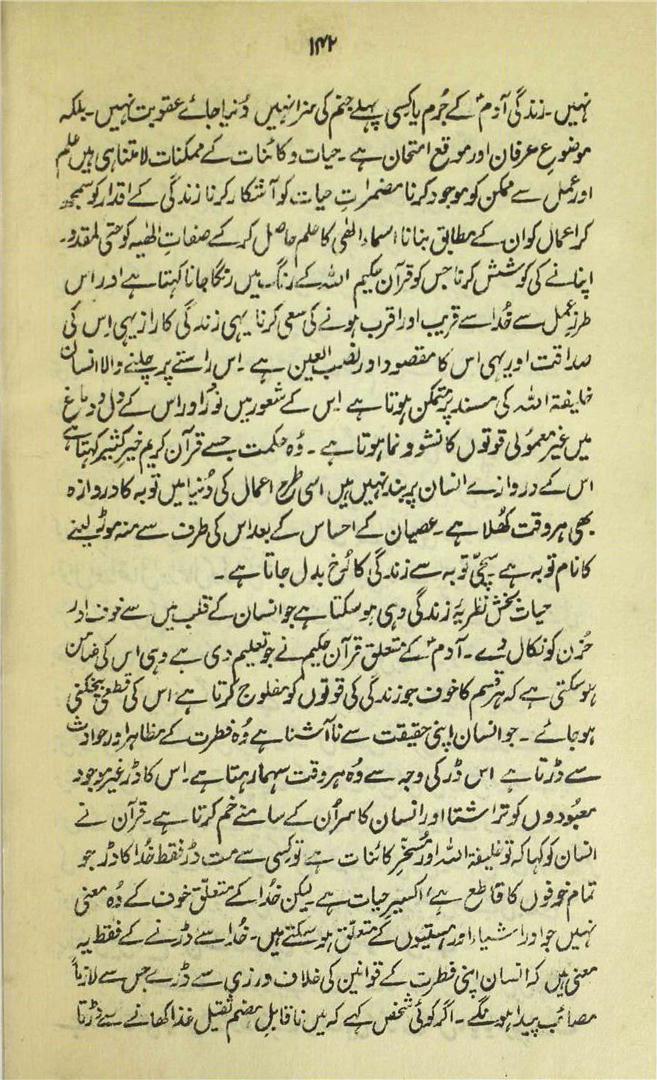 ۱۴۲
نہیں۔ زندگی آدمؑ کے جُرم یا کسی پہلے جنم کی سزا نہیں دُنیا جائے عقوبت نہیں۔ بلکہ
موضوعِ عرفان اور موقع امتحان ہے۔ حیات و کائنات کے ممکنات لامتناہی ہیں علم
اور عمل سے ممکن کو موجود کرنا مضمراتِ حیات کو آشکار کرنا زندگی کے اقدار کو سمجھ
کر اعمال کو ان کے مطابق بنانا اسماء الٰہی کا علم حاصل کر کے صفاتِ الٰہیہ کو حتی المقدور۔
اپنانے کی کوشش کرنا جس کو قرآن حکیم اللہ کے رنگ میں رنگا جانا کہتا ہے اور اس
طرزِ عمل سے خُدا سے قریب اور اقرب ہونے کی سعی کرنا یہی زندگی کا راز یہی اس کی
صداقت اور یہی اس کا مقصود اور نصب العین ہے اس راستے پر چلنے والا انسان
خلیفۃ اللہ کی مسند پر متمکن ہوتا ہے اس کے شعور میں نُور اور اس کے دل و دماغ
میں غیر معمولی قوتوں کا نشو و نما ہوتا ہے۔ وُہ حکمت جسے قرآن کریم خیرِ کثیر کہتا ہے
اس کے دروازے انسان پر بند نہیں ہیں اسی طرح اعمال کی دُنیا میں توبہ کا دروازہ
بھی ہر وقت کھُلا ہے۔ عصیان کے احساس کے بعد اس کی طرف سے منہ موڑ لینے
کا نام توبہ ہے سچّی توبہ سے زندگی کا رُخ بدل جاتا ہے۔
حیات بخش نظریۂ زندگی وہی ہو سکتا ہے جو انسان کے قلب میں سے خوف اور
حُزن کو نکال دے۔ آدمؑ کے متعلق قرآن حکیم نے جو تعلیم دی ہے وہی اس کی ضامن
ہو سکتی ہے کہ ہر قسم کا خوف جو زندگی کی قوتوں کو مفلوج کرتا ہے اس کی قطعی بیخکنی
ہو جائے۔ جو انسان اپنی حقیقت سے ناآشنا ہے وُہ فطرت کے مظاہر اور حوادث
سے ڈرتا ہے اس ڈر کی وجہ سے وُہ ہر وقت سہما رہتا ہے۔ اس کا ڈر غیر موجود
معبُودوں کو تراشتا اور انسان کا سر اُن کے سامنے خم کرتا ہے۔ قرآن نے
انسان کو کہا کہ تو خلیفۃ اللہ اور مُسخّر کائنات ہے تو کسی سے مت ڈر فقط خُدا کا ڈر جو
تمام خوفوں کا قاطع ہے، اکسیرِ حیات ہے لیکن خُدا کے متعلّق خوف کے وُہ معنی
نہیں جو اور اشیاء اور ہستیوں کے متعلّق ہو سکتے ہیں۔ خُدا سے ڈرنے کے فقط یہ
معنی ہیں کہ انسان اپنی فطرت کے قوانین کی خلاف ورزی سے ڈرے جس سے لازماً
مصائب پیدا ہونگے۔ اگر کوئی شخص کہے کہ میں ناقابلِ ہضم ثقیل غذا کھانے سے ڈرتا